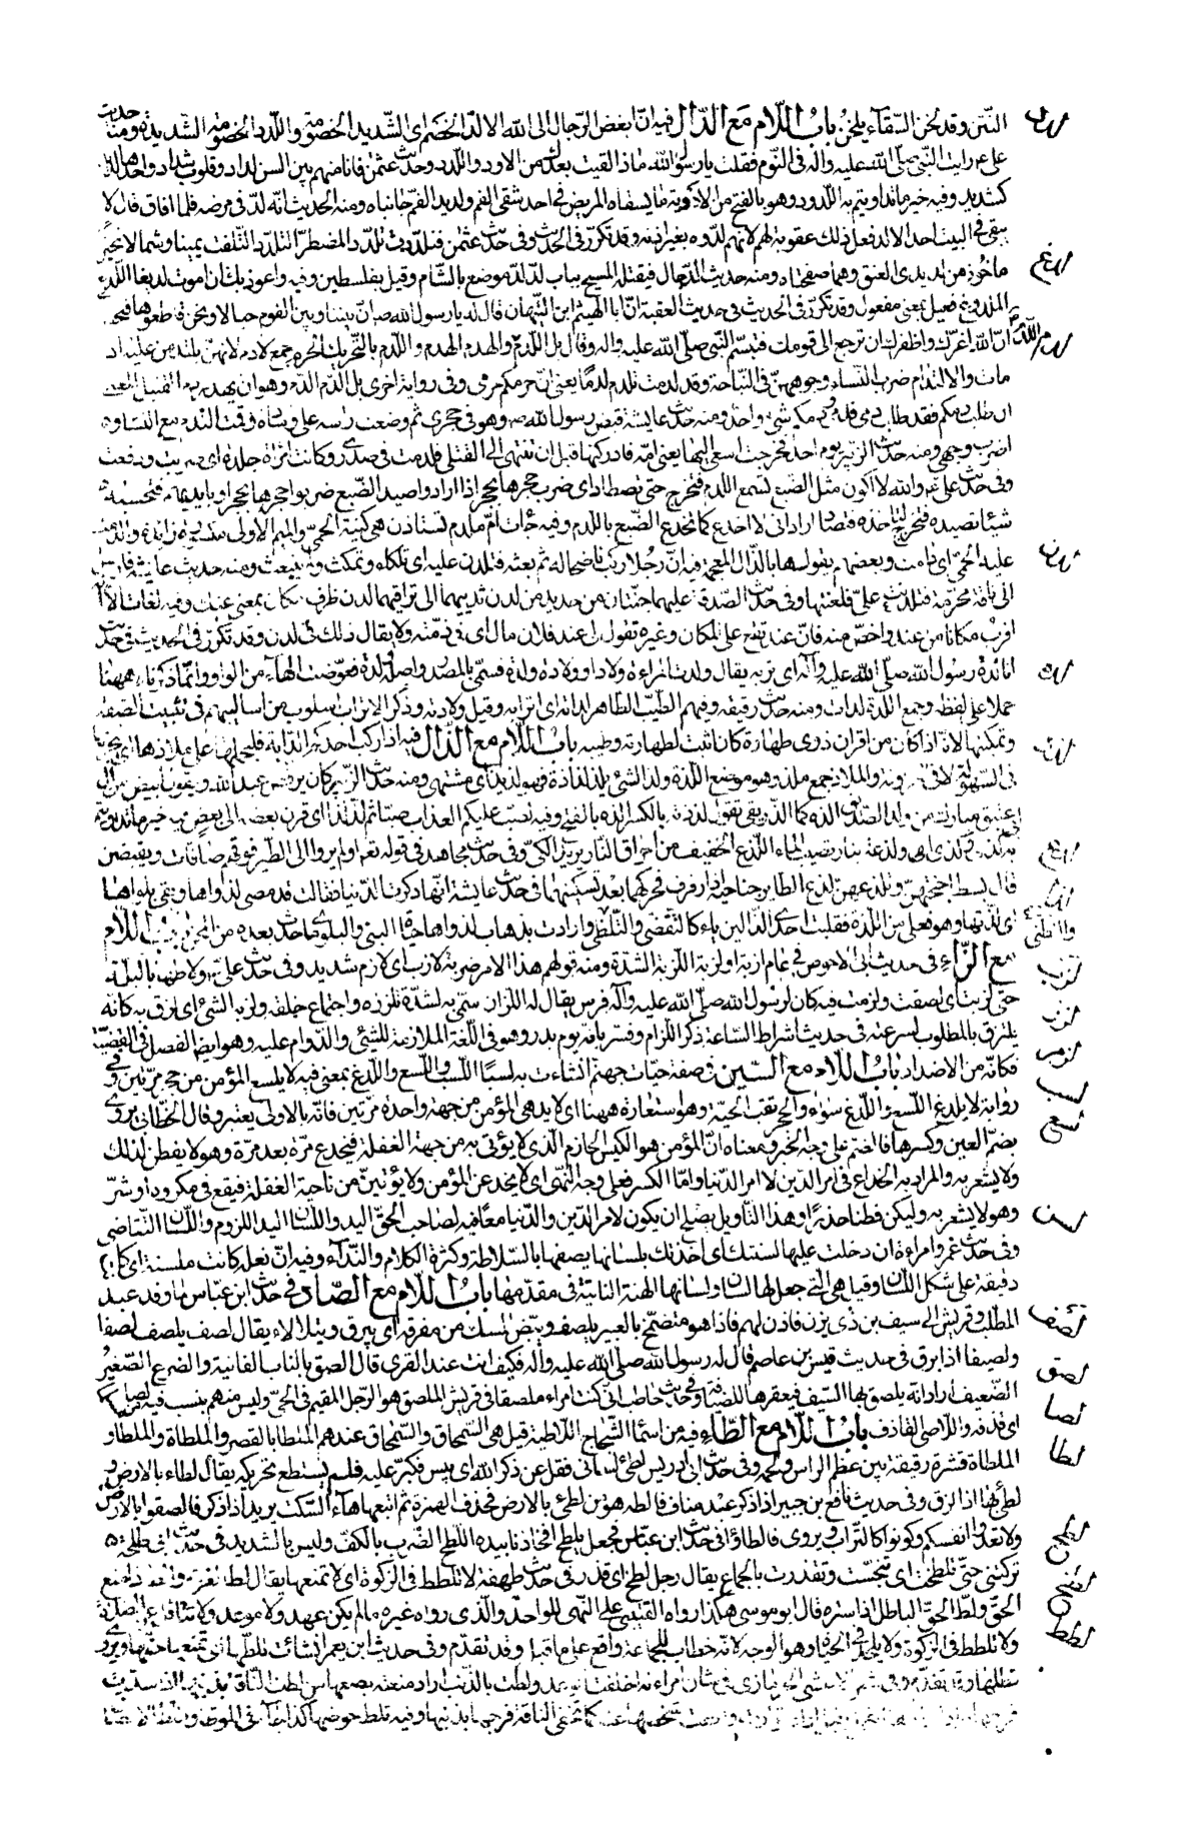 النتن وقد لخن السقاء يلخن باب اللام مع الدال فيه انّ ابغض الرجال الى الله الالدّ الخصم اى الشديد الخصومة واللدد الخصومة الشديدة ومنه حديث
على م رايت النبى صلى الله عليه واله فى النوم فقلت يا رسول الله ماذا لقيت بعدك من الاود واللدد وحديث عثمن فانا منهم بين السن لداد وقلوب شداد واحدها لديد
كشديد وفيه خير ما تداويتم به اللدود وهو بالفتح من الادوية ما يسقاه المريض فى احد شقى الفم ولديد الفم جانباه ومنه الحديث انه لدّ فى مرضه فلما افاق قال لا
يبقى فى البيت احد الا لدّ فعل ذلك عقوبة لهم لانهم لدّوه بغير اذنه وقد تكرر فى الحديث وفى حديث عثمن فتلددت تلدّد المضطرّ التلدّد التلفت يمينا وشمالا تحيرا
ماخوذ من لديدى العنق وهما صفحتاه ومنه حديث الدجال فيقتله المسيح بباب لدّ لدّ موضع بالشام وقيل بفلسطين وفيه واعوذ بك ان اموت لديغا اللديغ
الملدوغ فعيل بمعنى مفعول وقد تكرر فى الحديث فى حديث العقبة انّ ابا الهيثم ابن التيهان قال له يا رسول الله ص انّ بيننا وبين القوم حبالا ونحن قاطعوها
انّ الله اعزّك واظفرك ان ترجع الى قومك فتبسّم النبى صلى الله عليه واله وقال بل اللدم اللدم والهدم الهدم واللدم بالتحريك الحرم جمع لادم لانهنّ يلتدمن عليه اذا
مات والالتدام ضرب النساء وجوههنّ فى النياحة وقد لدمت تلدم لدمًا يعنى انّ حرمكم حرمى وفى رواية اخرى بل الدم الدم وهو ان يهدر دم القتيل المعنى
ان طلب دمكم فقد طلب دمى فدمى ودمكم شىء واحد ومنه حديث عايشة قبض رسول الله ص وهو فى حجرى ثم وضعت راسه على وسادة وقمت التدم مع النساء و
اضرب وجهى ومنه حديث الزبير يوم احد فخرجت اسعى اليها يعنى امّه فادركتها قبل ان تنتهى الى القتلى فلدمت فى صدرى وكانت امراة جلدة اى ضربت ودفعت
وفى حديث على عم والله لا اكون مثل الضبع تسمع اللدم فتخرج حتى تصطاد اى ضرب جحرها بحجر اذا ارادوا صيد الضبع ضربوا جحرها بحجر او بايديهم فتحسبه
شيئا تصيده فتخرج لتاخذه فتصاد اراد انى لا اخدع كما تخدع الضبع باللدم وفيه جاءت امّ ملدم تستاذن هى كنية الحمى والميم الاولى مكسورة زايدة والدمت
عليه الحمى اى دامت وبعضهم يقولها بالذال المعجمة فيه انّ رجلا ركب ناضحا له ثم بعثه فتلدن عليه اى تلكا وتمكث ولم ينبعث ومنه حديث عايشة فارسل
الى ناقة محرّمة فتلدنت علىّ فلعنتها وفى حديث الصدقة عليهما جنتان من حديد من لدن ثديهما الى تراقيهما لدن ظرف مكان بمعنى عند وفيه لغات الا انه
اقرب مكانا من عند واخصّ منه فانّ عند تقع على المكان وغيره تقول لى عند فلان مال اى فى ذمّته ولا يقال ذلك فى لدن وقد تكرر فى الحديث فى حديث
انا لدة رسول الله صلى الله عليه واله اى تربه يقال ولدت المراءة ولادا وولادة ولدة فسمّى بالمصدر واصله ولدة فعوّضت الهاء من الواو وانما ذكرناه ههنا
حملا على لفظه وجمع اللدة لدات ومنه حديث رقيقة وفيهم الطيّب الطاهر لداته اى اترابه وقيل ولاداته وذكر الاتراب اسلوب من اساليبهم فى تثبيت الصفة
وتمكينها لانه اذا كان من اقران ذوى طهارة كان اثبت لطهارته وطيبه باب اللام مع الذال فيه اذا ركب احدكم الدابة فليحملها على ملاذها اى ليجرها
فى السهولة لا فى الحزونة والملاذ جمع ملذ وهو موضع اللذة ولذ الشىء يلذ لذاذة فهو لذيذ اى مشتهى ومنه حديث الزبير كان يرقص عبد الله ويقول ابيض من ال
ابى عتيق مبارك من ولد الصديق الذّه كما الذّ ريقى تقول لذذته بالكسر الذّه بالفتح وفيه لصبّ عليكم العذاب صبّا ثم لذّ لذّا اى قرن بعضه الى بعض فيه خير ما تداويتم
به كذا وكذا او لذعة بنار تصيب الماء اللذع الخفيف من احراق النار يريد الكىّ وفى حديث مجاهد فى قوله تعم اولم يروا الى الطير فوقهم صافات ويقبضن
قال بسط اجنحتهنّ وتلذعهنّ لذع الطاير جناحيه اذا رفرف فحركهما بعد تسكينهما فى حديث عايشة انها ذكرت الدنيا فقالت قد مضى لذواها وبقى بلواها
اى لذتها وهو فعلى من اللذة فقلبت احدى الذالين ياء كالتقضى والتلظى وارادت بذهاب لذواها حياة النبى والبلوى ما حدث بعده من المحن باب اللام
مع الزاء فى حديث ابى الاحوص فى عام ازبة او لزبة اللزبة الشدة ومنه قولهم هذا الامر ضربة لازب اى لازم شديد وفى حديث على ولاطها بالبلة
حتى لزبت اى لصقت ولزمت فيه كان لرسول الله صلى الله عليه واله فرس يقال له اللزاز سمّى به لشدة تلززه واجتماع خلقه ولزّ به الشىء اى لزق به كانه
يلتزق بالمطلوب لسرعته فى حديث اشراط الساعة ذكر اللزام وفسر بانه يوم بدر وهو فى اللغة الملازمة للشىء والدوام عليه وهو ايضا الفصل فى القضية
فكانّه من الاضداد باب اللام مع السين فى صفة حيّات جهنم انشاءت به لسبًا اللسب واللسع واللدغ بمعنى فيه لا يلسع المؤمن من جحر مرّتين وفى
رواية لا يلدغ اللسع واللدغ سواء والجحر ثقب الحيّة وهو استعارة ههنا اى لا يدهى المؤمن من جهة واحدة مرّتين فانه بالاولى يعتبر وقال الخطابى يروى
بضم العين وكسرها فالضم على وجه الخبر ومعناه انّ المؤمن هو الكيس الحازم الذى لا يؤتى به من جهة الغفلة فيخدع مرّة بعد مرّة وهو لا يفطن لذلك
ولا يشعر به والمراد به الخداع فى امر الدين لا امر الدنيا وامّا الكسر فعلى وجه النهى اى لا يخدعن المؤمن ولا يؤتينّ من ناحية الغفلة فيقع فى مكروه او شرّ
وهو لا يشعر به وليكن فطنا حذرًا وهذا التاويل يصلح ان يكون لامر الدين والدنيا معا فيه لصاحب الحق اليد واللسان اليد اللزوم واللسان التقاضى
وفى حديث عمر وامراءة ان دخلت عليها لسنتك اى اخذتك بلسانها يصفها بالسلاطة وكثرة الكلام والبذاء وفيه انّ نعله كانت ملسنة اى كانت
دقيقة على شكل اللسان وقيل هى التى جعل لها لسان ولسانها الهنة الناتية فى مقدّمها باب اللام مع الصاد فى حديث ابن عباس لما وفد عبد
المطلب وقريش الى سيف بن ذى يزن فاذن لهم فاذا هو متضمّخ بالعبير يلصف وبيض المسك من مفرقه اى يبرق ويتلالاء يقال لصف يلصف لصفا
ولصيفا اذا برق فى حديث قيس بن عاصم قال له رسول الله صلى الله عليه واله فكيف انت عند القرى قال الصق بالناب الفانية والضرع الصغير
الضعيف اراد انه يلصق بها السيف فيعقرها للضيافة وفى حديث حاطب انى كنت امراء ملصقا فى قريش الملصق هو الرجل المقيم فى الحىّ وليس منهم بنسب فيه
اى قذفه واللاصى القاذف باب اللام مع الطاء فيه من اسماء الشجاج اللاطية قيل هى السمحاق والسمحاق عندهم الملطا بالقصر والملطاة والملطاء و
الملطاة قشرة رقيقة بين عظم الراس ولحمه وفى حديث ابن ادريس لطئ لسانى فقل عن ذكر الله اى يبس فكبر عليه فلم يستطع تحريكه يقال لطاء بالارض و
لطئ بها اذا لزق وفى حديث نافع بن جبير اذا ذكر عبد مناف فالطه هو من لطئ بالارض فحذف الهمزة ثم اتبعها هاء السكت يريد اذا ذكر فالصقوا بالارض
ولا تعدوا انفسكم وكونوا كالتراب ويروى فالطاؤا فى حديث ابن عباس فجعل يلطح افخاذنا بيده اللطح الضرب بالكف وليس بالشديد فى حديث ابى طلحة
تركتنى حتى تلطخت اى تنجّست وتقذرت بالجماع يقال رجل لطخ اى قذر فى حديث طهفة لا تلطط فى الزكوة اى لا تمنعها يقال لطّ الغريم والطّ اذا منع
الحق ولطّ الحق بالباطل اذا ستره قال ابو موسى هكذا رواه القتيبى على النهى للواحد والذى رواه غيره ما لم يكن عهد ولا موعد ولا تثاقل عن الصلوة
ولا تلطط فى الزكوة ولا يلحد فى الحيوة وهو الوجه لانه خطاب للجماعة واقع على ما قبله وقد تقدّم وفى حديث ابن يعمر انشأت تلطّها اى تمنعها حقها ويروى
تطلها وقد تقدّم وفى شعر الاعشى الحرمازى فى شان امراءته اخلفت الوعد ولطت بالذنب اراد منعته بضعها من لطت الناقة بذنبها اذا سدّت
فرجها به اذا ارادها الفحل وقيل اراد توارت واخفت شخصها عنه كما تخفى الناقة فرجها بذنبها وفيه تلط حوضها كذا جاء فى الموطا
لدد
لدغ
لدم
لدن
لدة
لذذ
لذع
لزب
لزز
لزم
لسب
لسع
لسن
لصف
لصق
لصا
لطا
لطح
لطخ
لطط